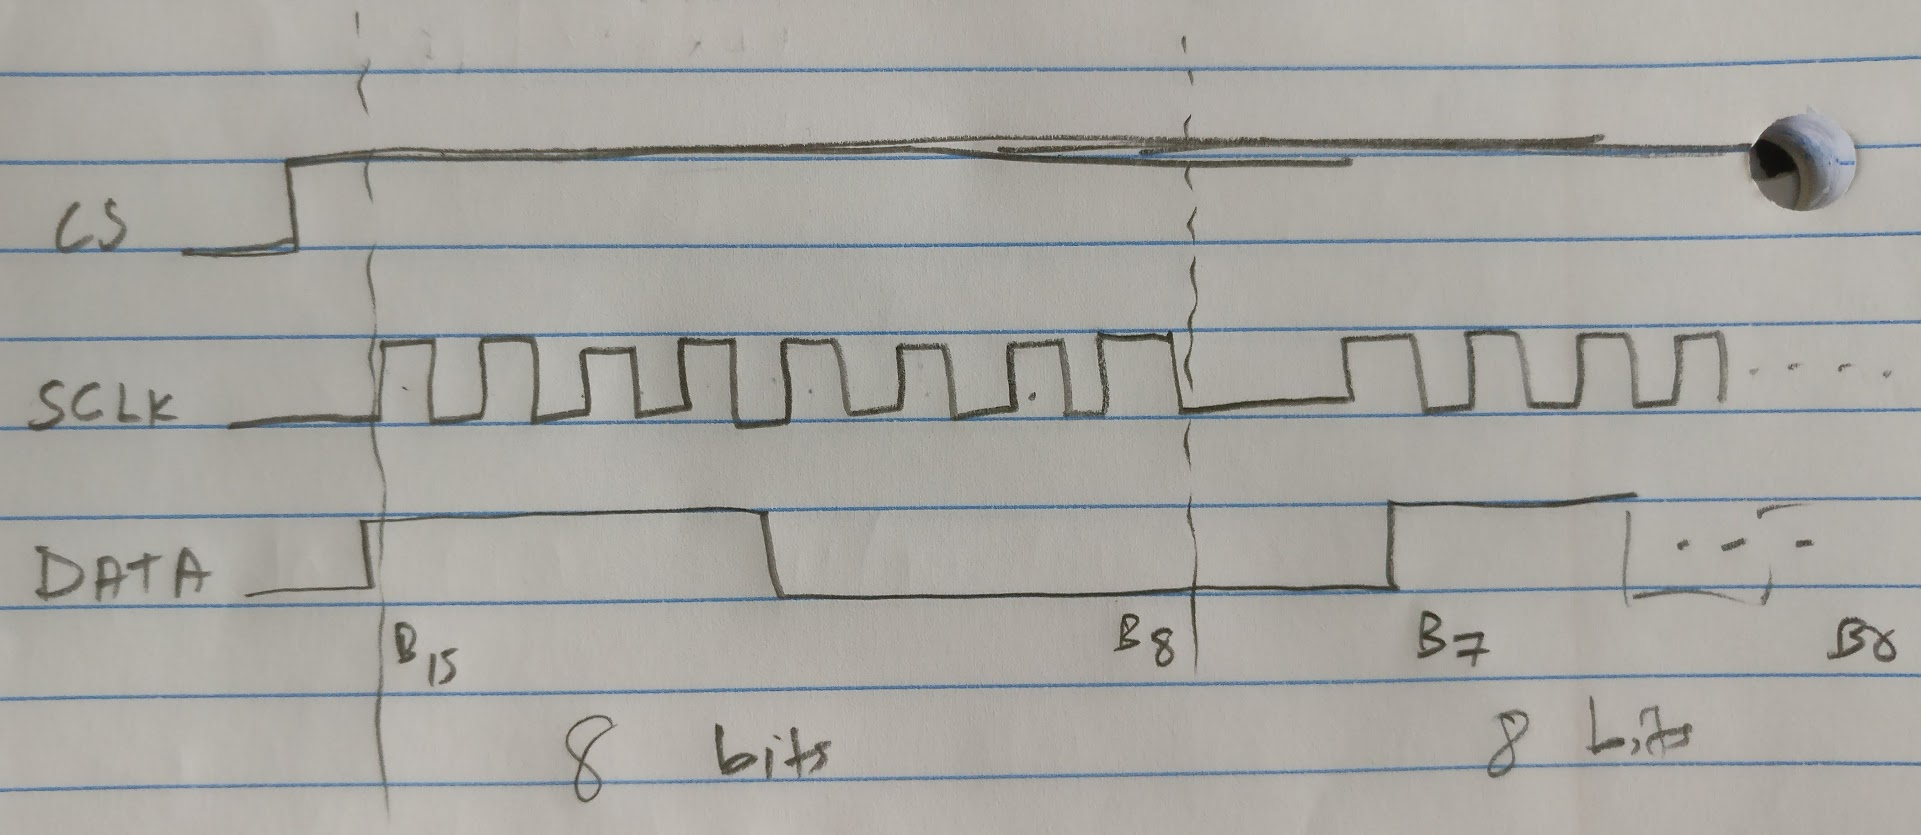 CS
SCLK
DATA
B15 B8 B7 B0
8 bits 8 bits